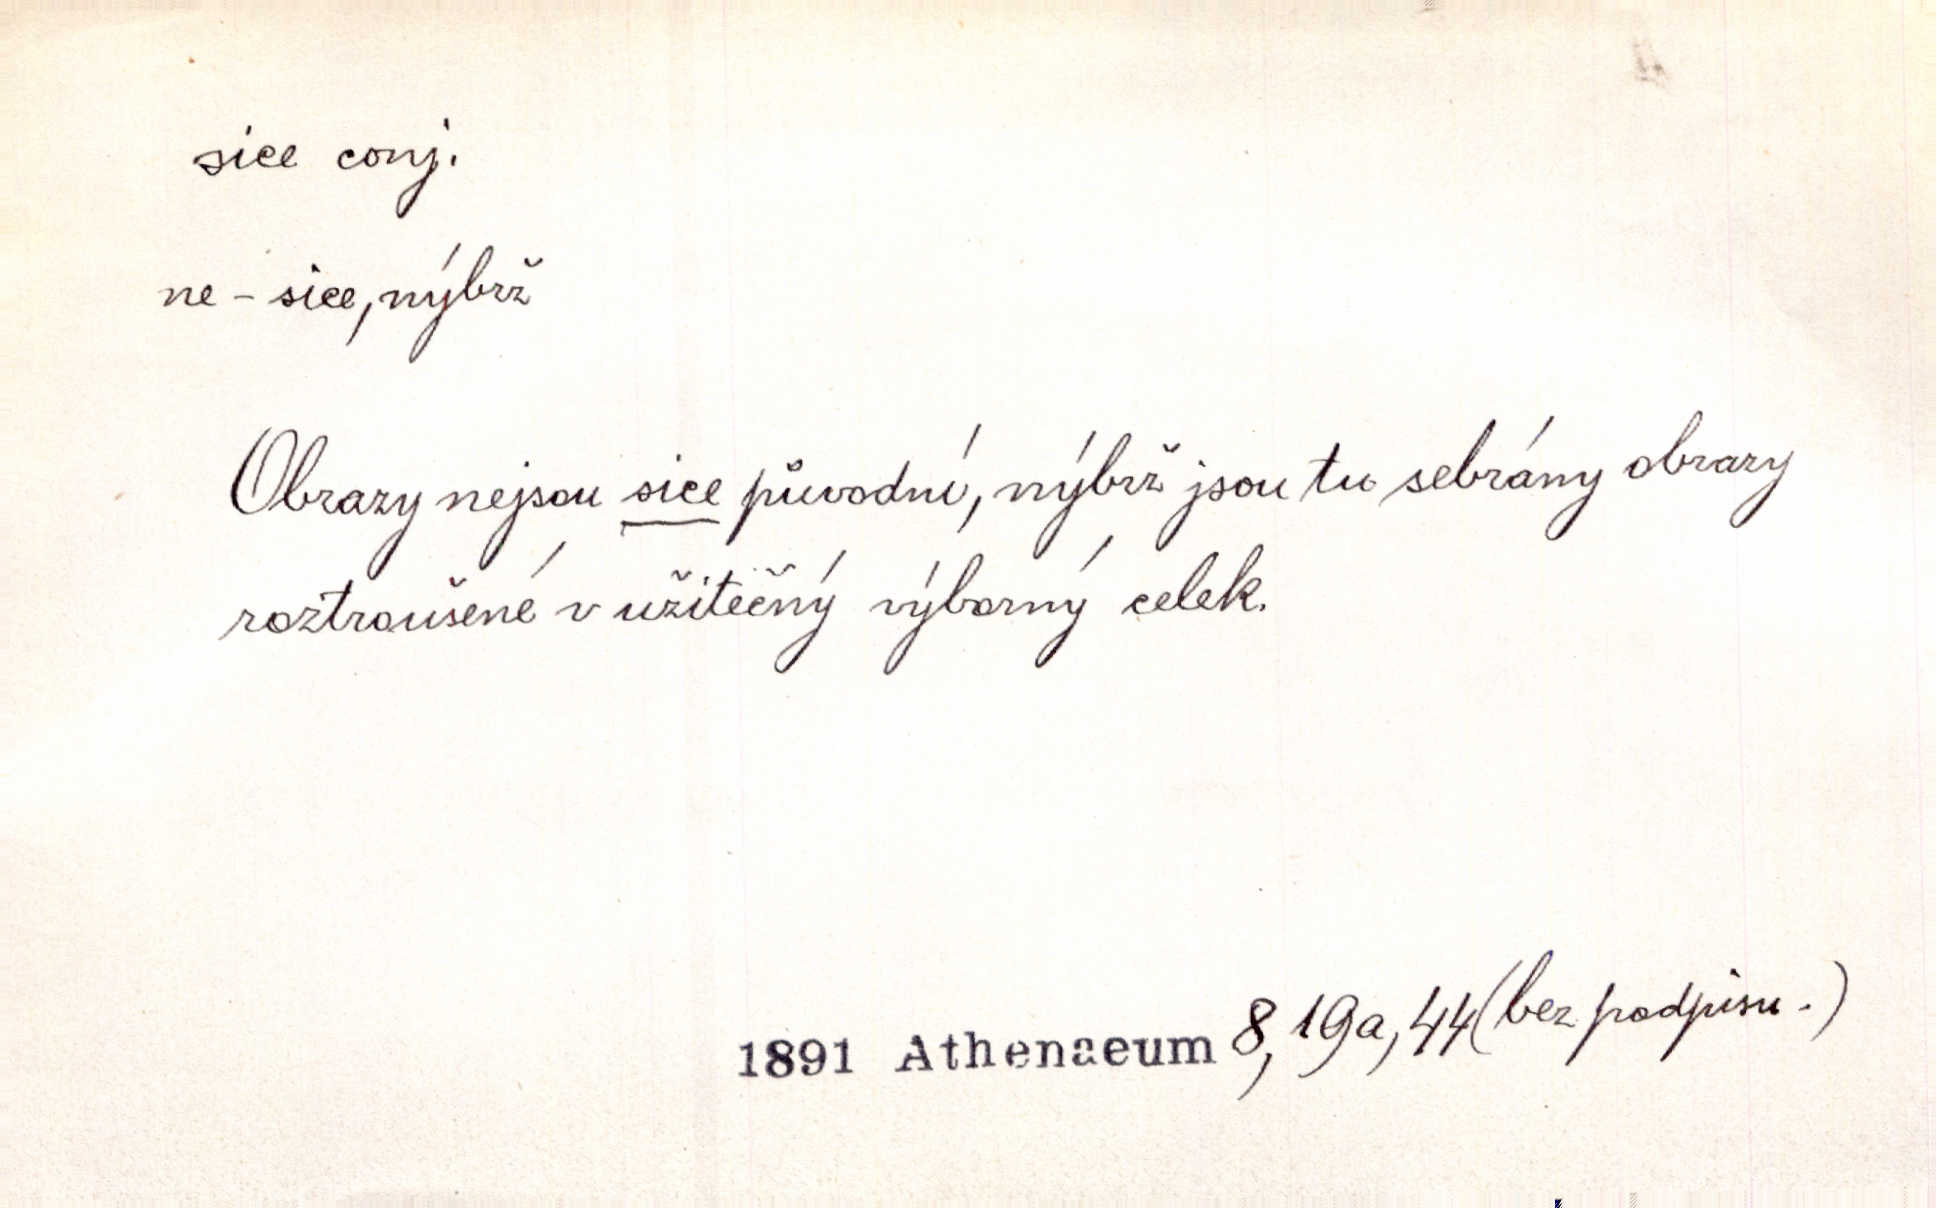 sice conj.
ne - sice, nýbrž
Obrazy nejsou sice původní, nýbrž jsou tu sebrány obrazy
roztroušené v užitečný výborný celek.
1891 Athenaeum 8, 19a, 44 (bez podpisu.)